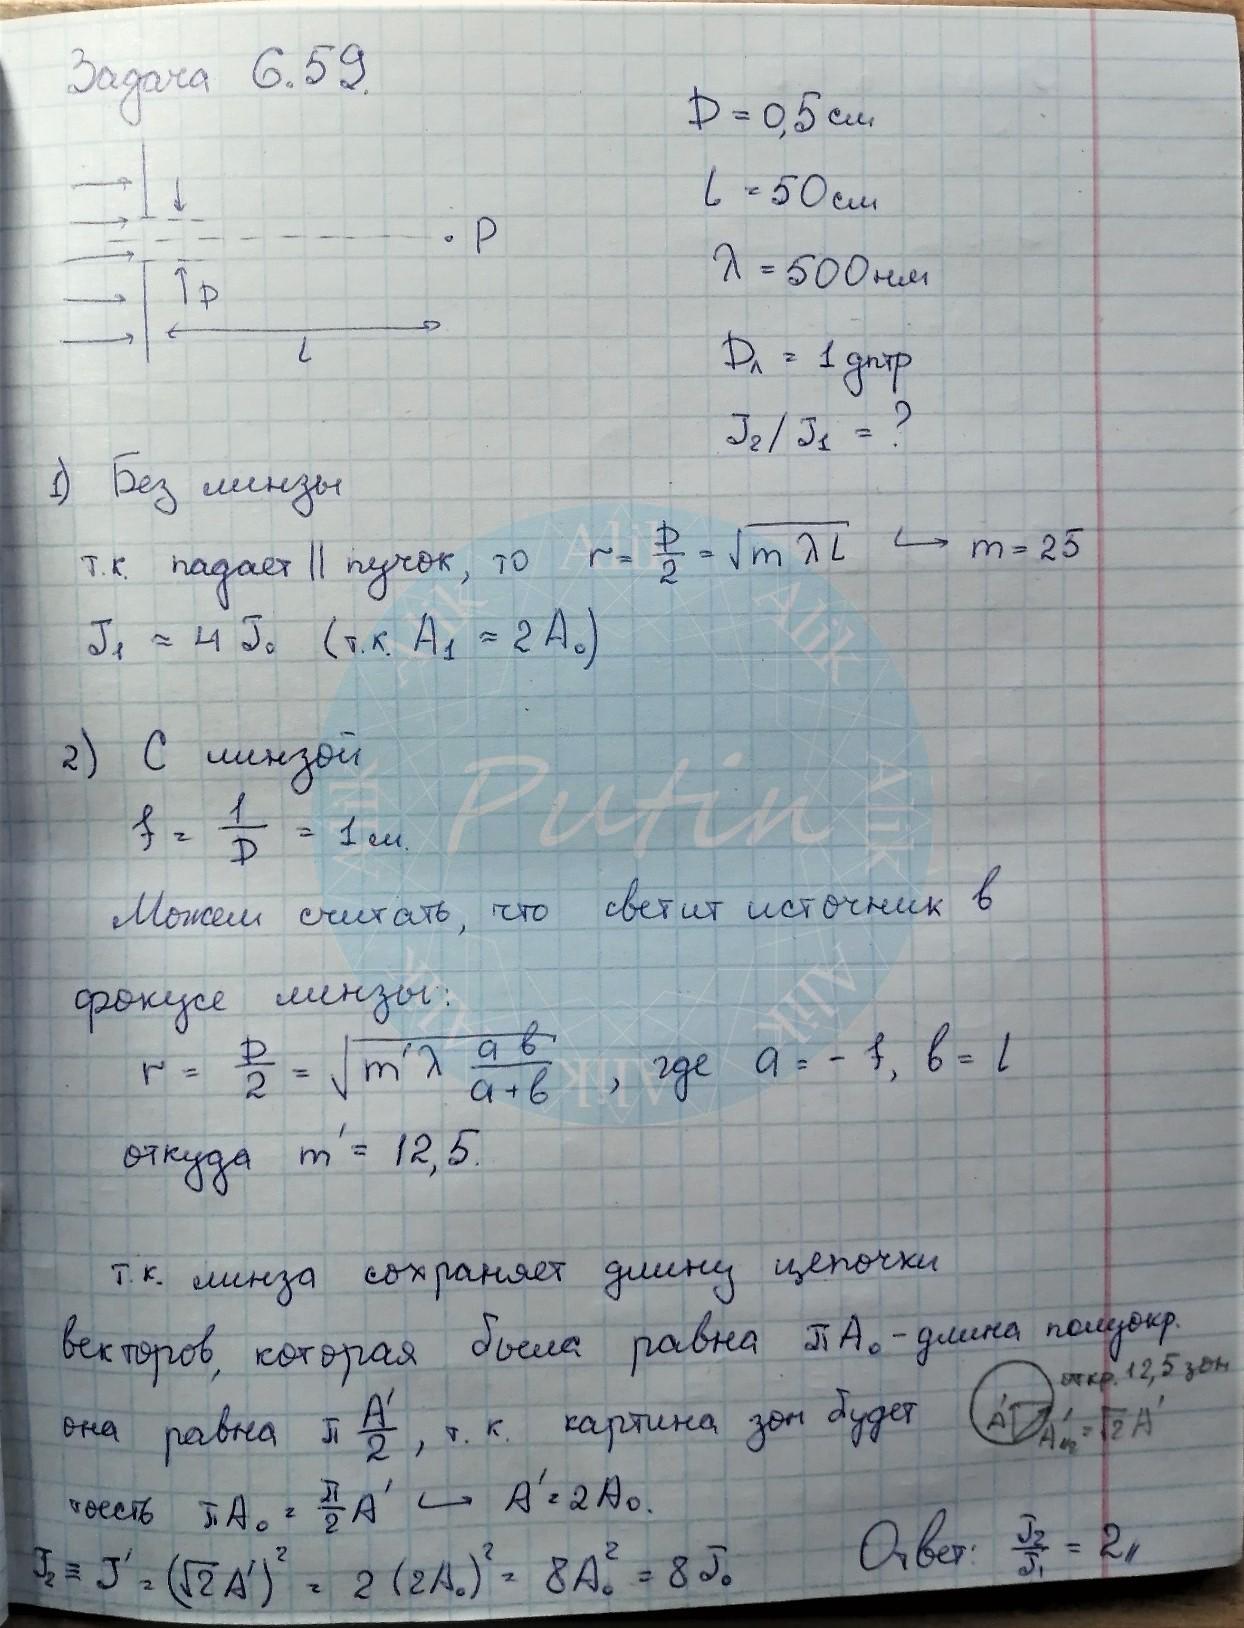 Задача 6.59.
D = 0,5 см
L = 50 см
λ = 500 нм
Dл = 1 дптр
J₂/J₁ = ?
P
D
L
1) Без линзы
т.к. падает || пучок, то r = D/2 = √(mλL) ↳ m = 25
J₁ ≈ 4J₀ (т.к. A₁ ≈ 2A₀)
2) С линзой
f = 1/D = 1 м.
Можем считать, что светит источник в
фокусе линзы:
r = D/2 = √(m'λ ab/(a+b)), где a = -f, b = L
откуда m' = 12,5.
т.к. линза сохраняет длину цепочки
векторов, которая была равна πA₀ - длина полуокр.
она равна π A'/2, т.к. картина зон будет
откр. 12,5 зон
A'
= √2 A'
тоесть πA₀ = π/2 A' ↳ A' = 2A₀.
J₂ ≡ J' = (√2A')² = 2(2A₀)² = 8A₀² = 8J₀
Ответ: J₂/J₁ = 2,,
Putin
Alik
Alik
Alik
Alik
Alik
Alik
Alik
Alik